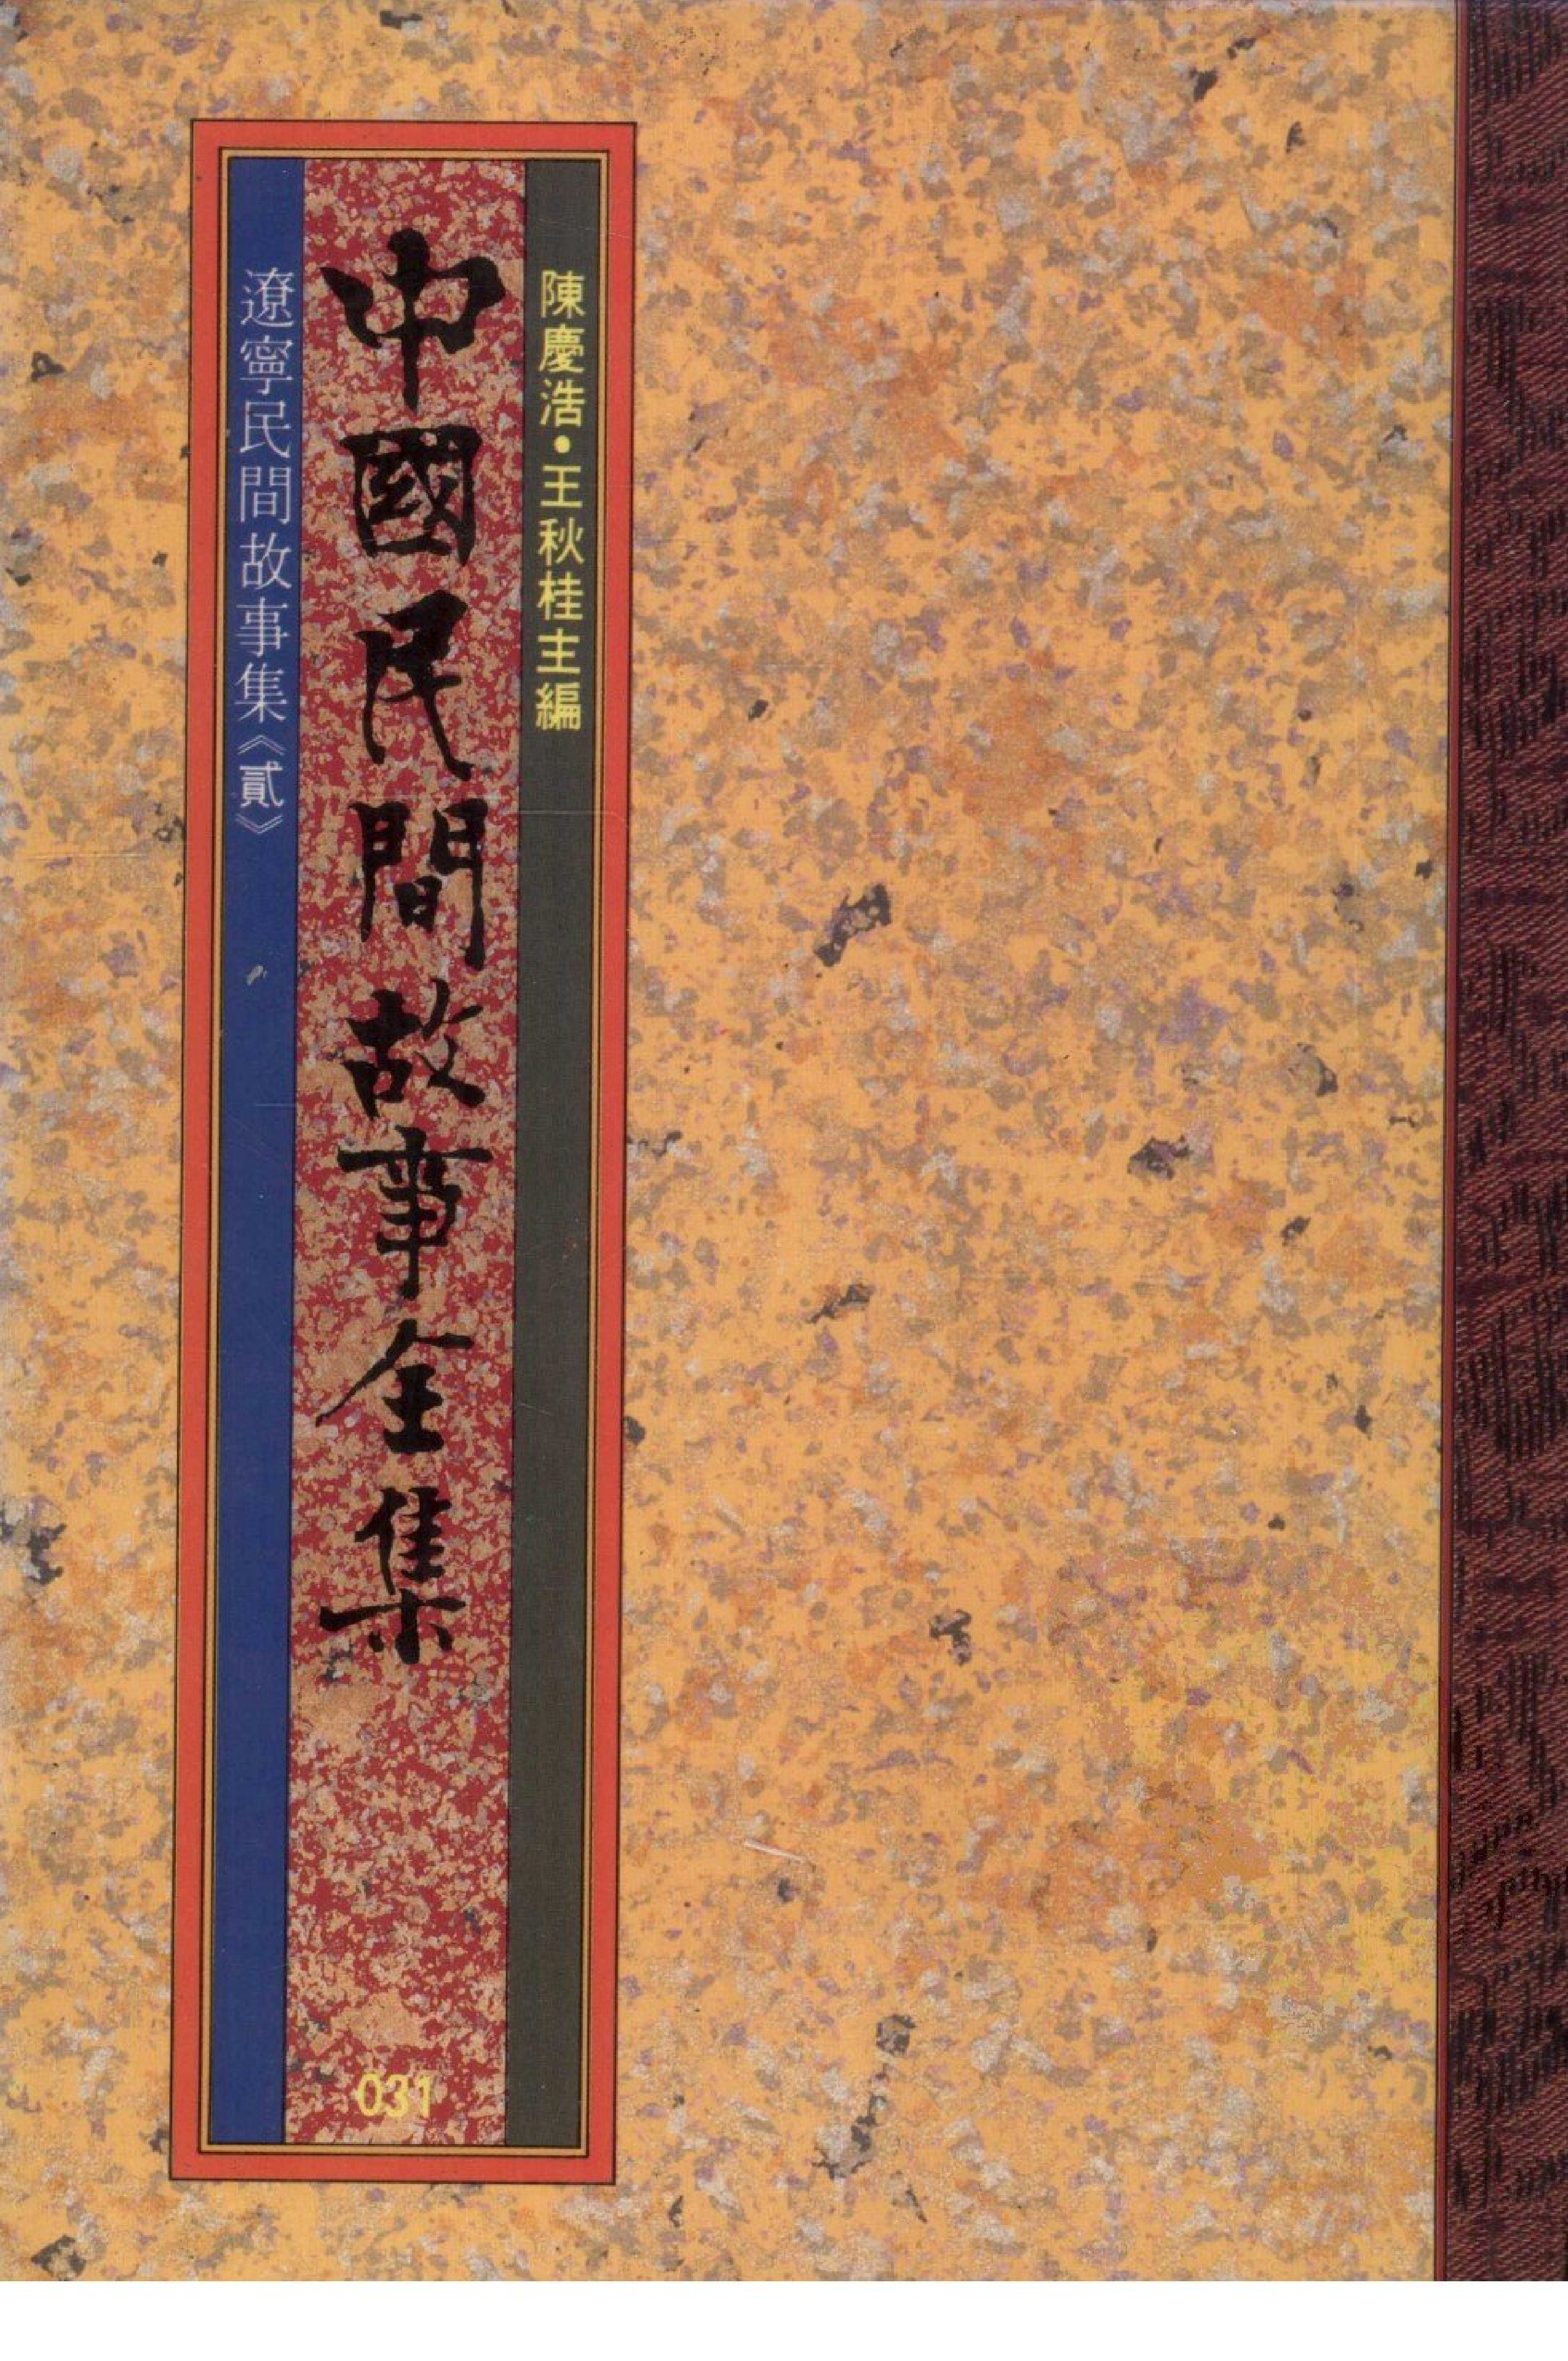 陳慶浩•王秋桂主編
中國民間故事全集
031
遼寧民間故事集《貳》